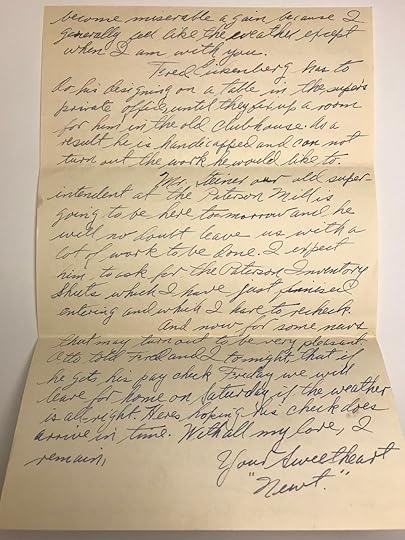 become miserable again because I
generally feel like the weather except
when I am with you.
Fred has to
do his designing on a table in the super's
private office, until they fix up a room
for him in the old clubhouse. As a
result he is handicapped and can not
turn out the work he would like to.
Mr. Steiner our old super-
intendent at the Paterson Mill is
going to be here tomorrow and he
will no doubt leave us with a
lot of work to be done. I expect
him to ask for the Paterson Inventory
Sheets which I have just finished
entering and which I have to recheck.
And now for some news
that may turn out to be very pleasant.
Otto told Fred and I tonight that if
he gets his pay check Friday we will
leave for home on Saturday if the weather
is all right. Heres hoping his check does
arrive in time. With all my love, I
remain,
Your Sweetheart
"Newt."